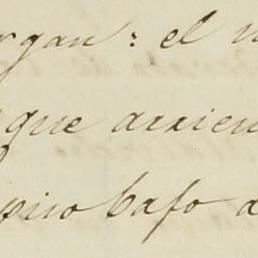 rgan: el
que arrien
piro bajo d